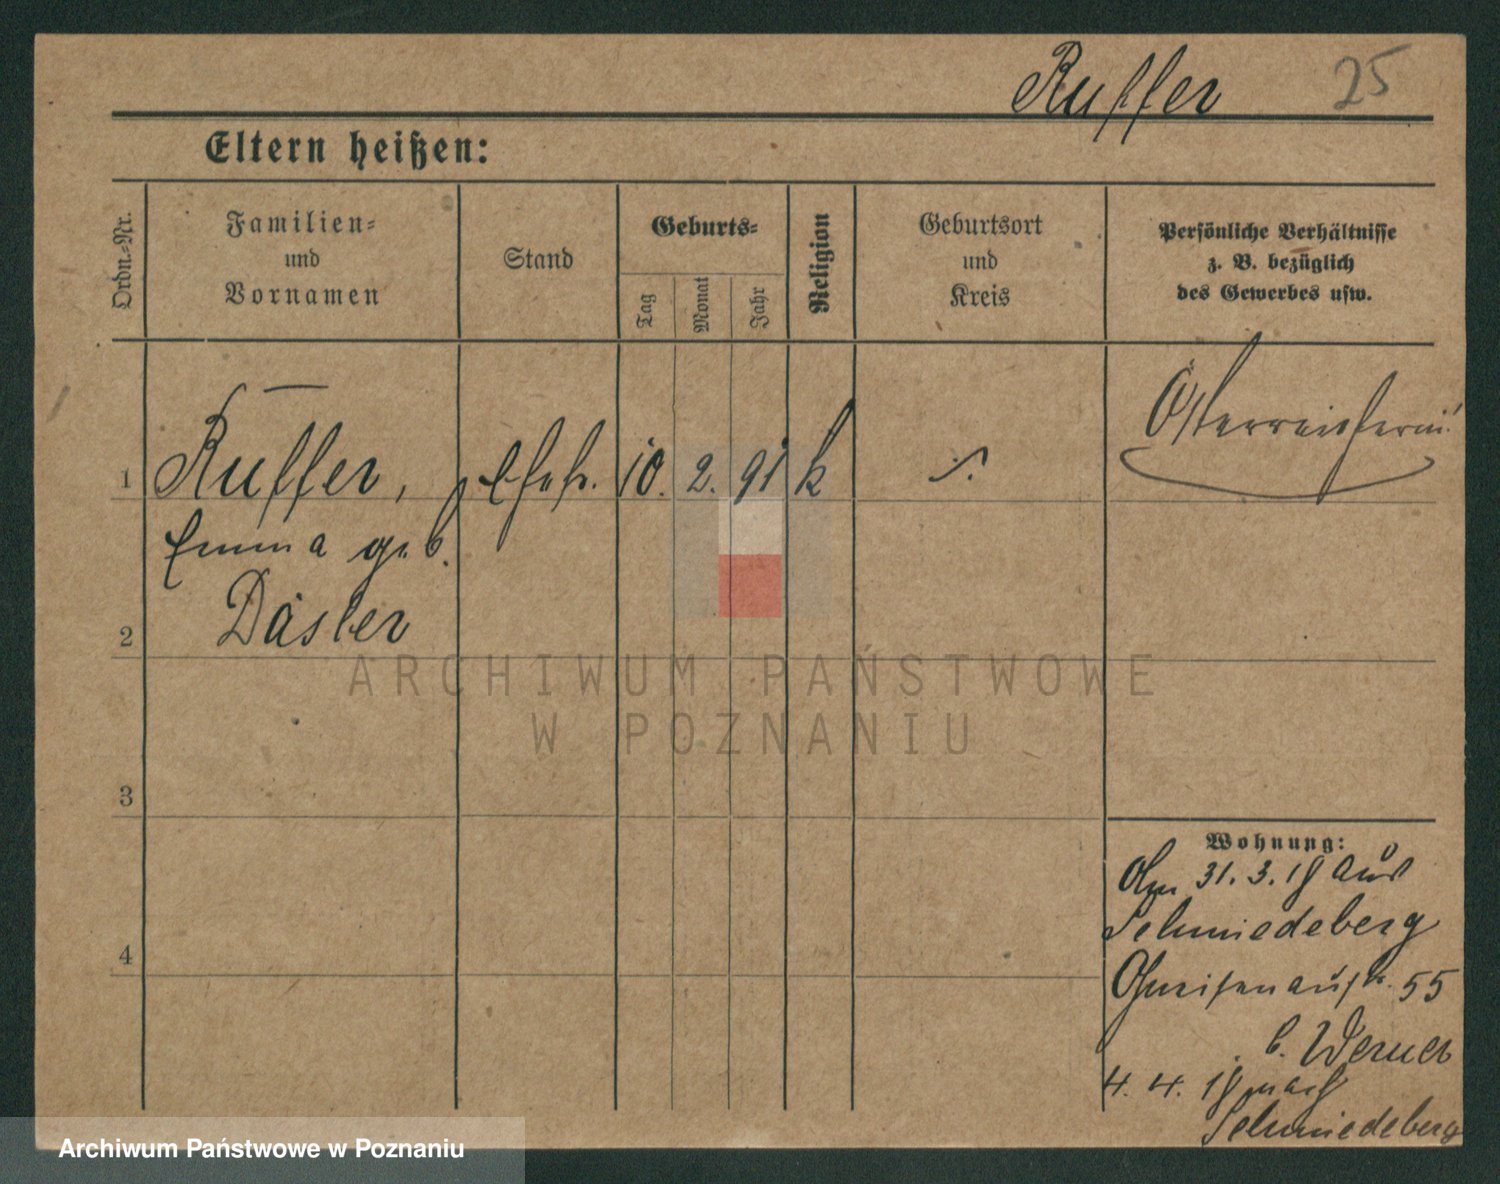 Ruffer 25
Eltern heißen:
Ordn.-Nr.
Familien-
und
Vornamen
Stand
Geburts-
Tag
Monat
Jahr
Religion
Geburtsort
und
Kreis
Persönliche Verhältnisse
z. B. bezüglich
des Gewerbes usw.
1 Ruffer, Ehefr. 10. 2. 91 k Österreicherin!
Emma geb.
2 Däsler
3
4
Wohnung:
Am 31. 3. 18 aus
Schmiedeberg
Gneisenaustr. 55
b. Werner
4. 4. 18 nach
Schmiedeberg
ARCHIWUM PAŃSTWOWE
W POZNANIU
Archiwum Państwowe w Poznaniu